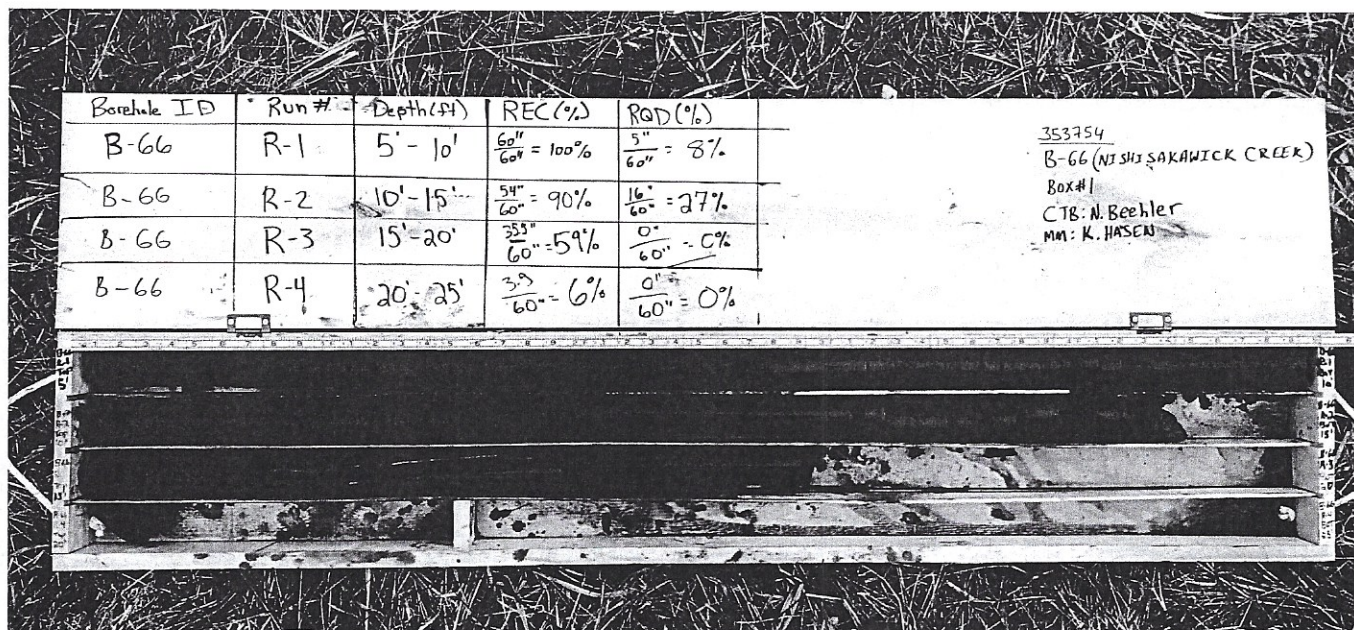 Borehole ID Run # Depth(ft) REC(%) RQD(%)
B-66 R-1 5'-10' 60"/60" = 100% 5"/60" = 8%
B-66 R-2 10'-15' 54"/60" = 90% 16"/60" = 27%
B-66 R-3 15'-20' /60" = 59% 0"/60" - 0%
B-66 R-4 20'-25' 3.9/60" = 6% 0"/60" = 0%
353754
B-66 (NISHISAKAWICK CREEK)
Box#1
CTB: N. Beehler
MM: K. HASEN
5'
10'
15'